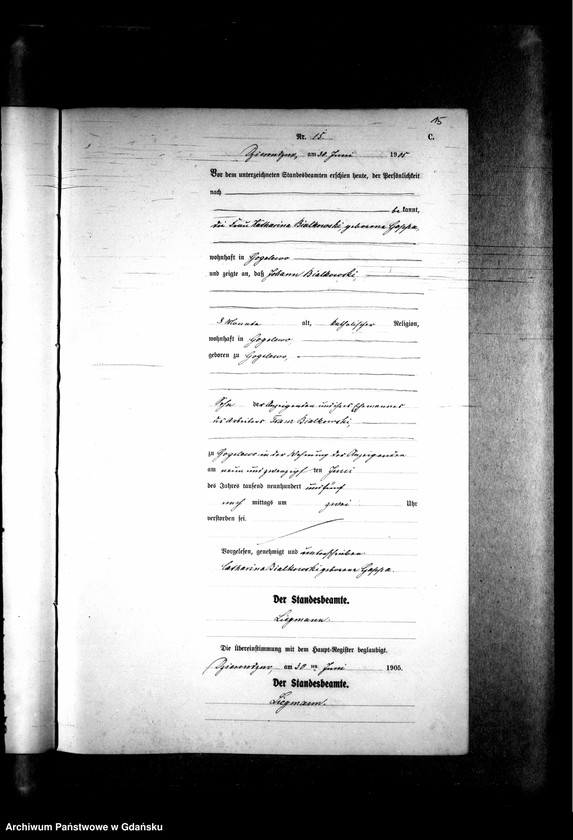 15
Nr. 15.
C.
am 30. Juni 1905
Vor dem unterzeichneten Standesbeamten erschien heute, der Persönlichkeit
nach
be kannt,
die Frau Katharina Bialkowski, geborene Gappa,
wohnhaft in Gogolewo
und zeigte an, daß Johann Bialkowski,
3 Monate alt, katholischer Religion,
wohnhaft in Gogolewo
geboren zu Gogolewo,
Sohn der Anzeigenden und ihres Ehemannes
des Arbeiters Franz Bialkowski,
zu Gogolewo in der Wohnung der Anzeigenden
am neun und zwanzigsten Juni
des Jahres tausend neunhundert und fünf
nach mittags um zwei Uhr
verstorben sei.
Vorgelesen, genehmigt und unterschrieben
Catharina Bialkowski geborene Gappa.
Der Standesbeamte.
Liegmann.
Die Übereinstimmung mit dem Haupt-Register beglaubigt.
am 30 ten Juni 1905.
Der Standesbeamte.
Liegmann.
Archiwum Państwowe w Gdańsku